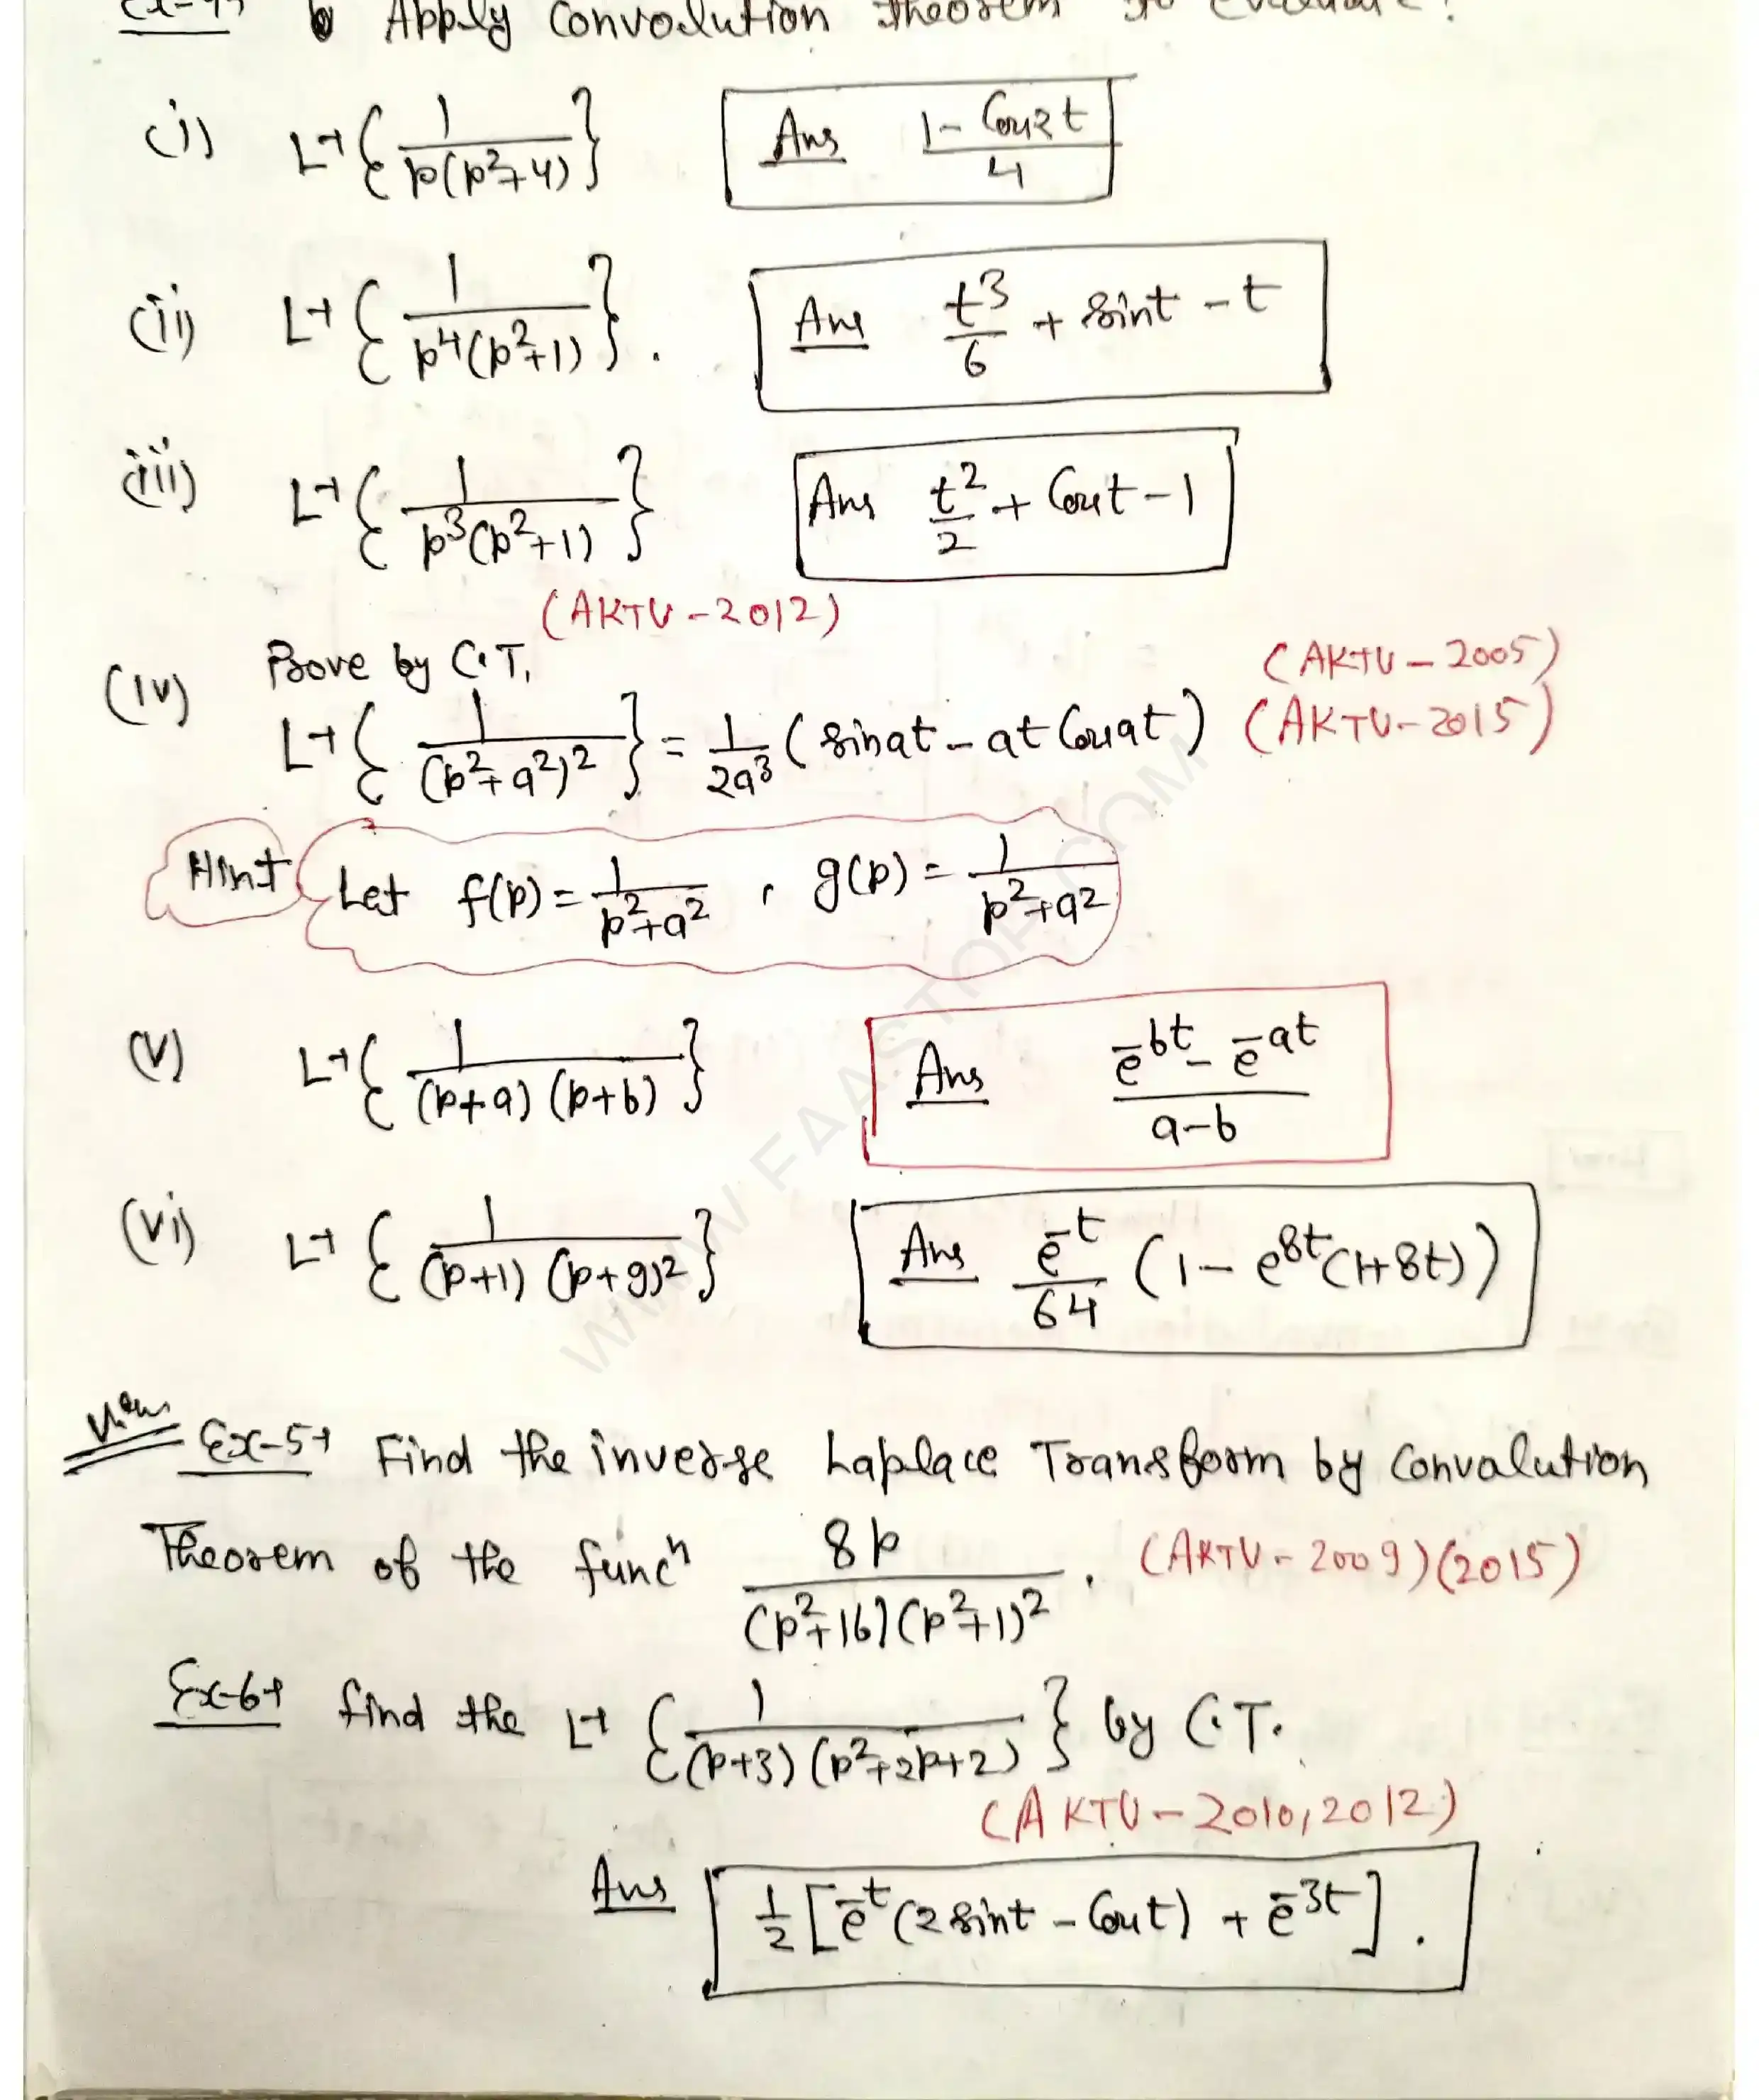 Ex-4→ Apply Convolution theorem to evaluate:
(i) L⁻¹{1/(p(p²+4))} Ans (1-Cos2t)/4
(ii) L⁻¹{1/(p⁴(p²+1))}. Ans t³/6 + sint - t
(iii) L⁻¹{1/(p³(p²+1))} Ans t²/2 + Cost - 1
(AKTU-2012)
(iv) Prove by C.T. (AKTU-2005)
L⁻¹{1/(p²+a²)²} = 1/(2a³) (sinat - at Cosat) (AKTU-2015)
Hint Let f(p) = 1/(p²+a²), g(p) = 1/(p²+a²)
(v) L⁻¹{1/((p+a)(p+b))} Ans (e⁻ᵇᵗ - e⁻ᵃᵗ)/(a-b)
(vi) L⁻¹{1/((p+1)(p+9)²)} Ans e⁻ᵗ/64 (1 - e⁸ᵗ(1+8t))
Ex-5→ Find the inverse Laplace Transform by Convalution
Theorem of the funcⁿ 8p/((p²+16)(p²+1)²). (AKTU-2009)(2015)
Ex-6→ find the L⁻¹{1/((p+3)(p²+2p+2))} by C.T.
(AKTU-2010,2012)
Ans 1/2 [e⁻ᵗ(2sint - Cost) + e⁻³ᵗ].